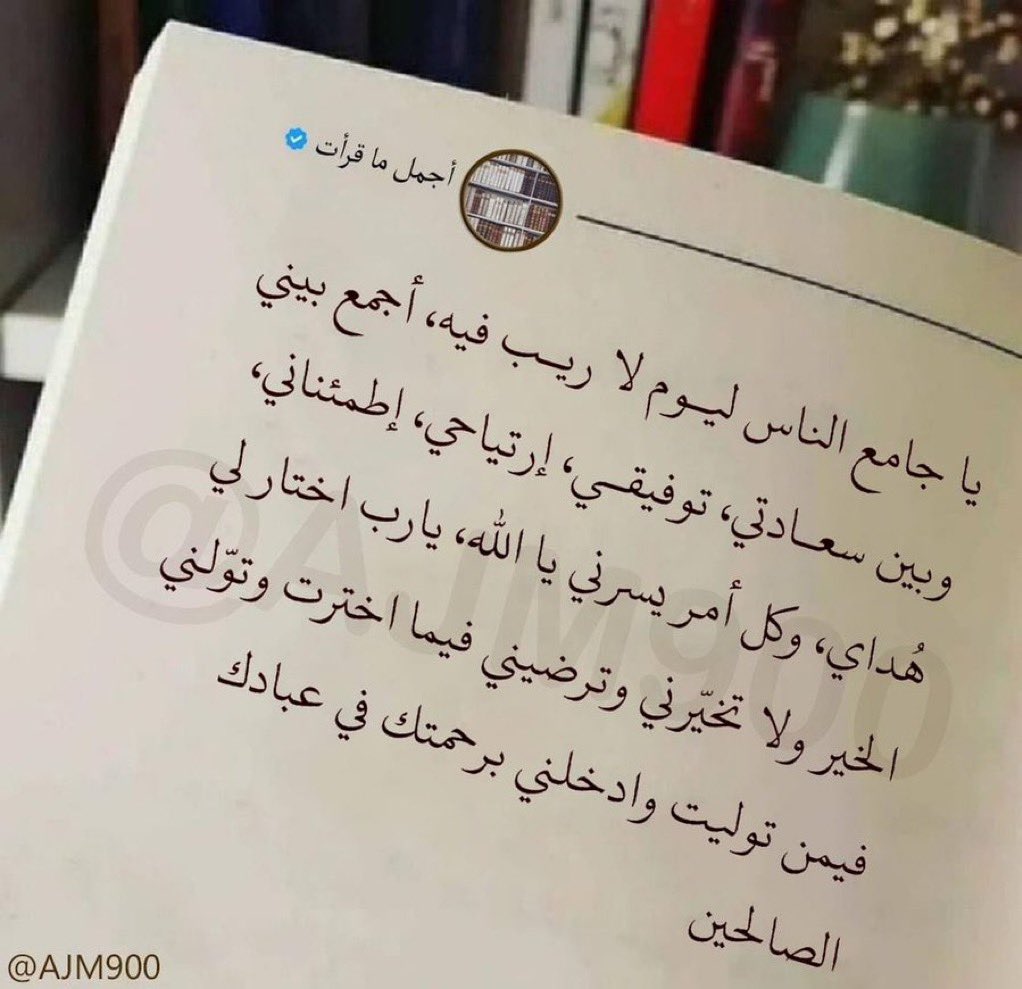 أجمل ما قرأت
يا جامع الناس ليوم لا ريب فيه، أجمع بيني
وبين سعادتي، توفيقي، إرتياحي، إطمئناني،
هُداي، وكل أمر يسرني يا الله، يارب اختار لي
الخير ولا تخيّرني وترضيني فيما اخترت وتوّلني
فيمن توليت وادخلني برحمتك في عبادك
الصالحين
@AJM900
@AJM900